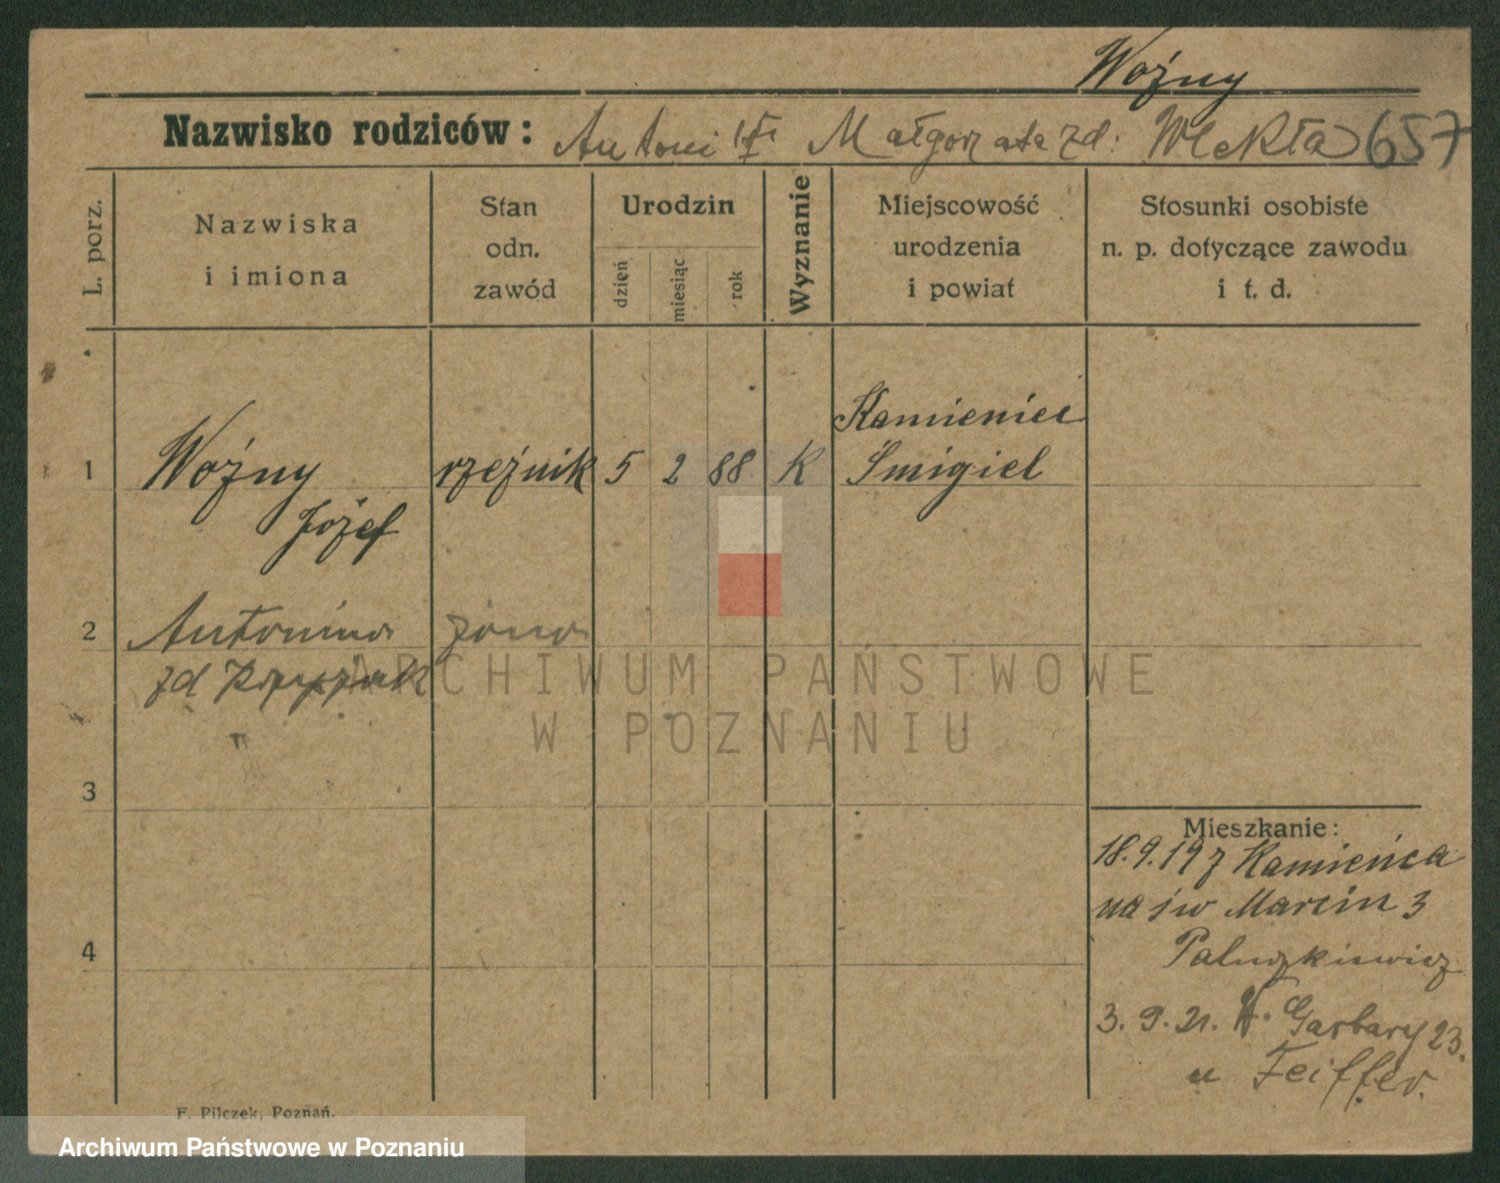 Woźny
Nazwisko rodziców: Antoni Małgorzata zd: Wlekła 657
L. porz.
Nazwiska
i imiona
Stan
odn.
zawód
Urodzin
dzień
miesiąc
rok
Wyznanie
Miejscowość
urodzenia
i powiat
Stosunki osobiste
n. p. dotyczące zawodu
i t. d.
Kamieniec
1 Woźny rzeźnik 5 2 88 K Śmigiel
Józef
2 Antonina żona
zd
ARCHIWUM PAŃSTWOWE
W POZNANIU
3
4
Mieszkanie:
18.9.19 z Kamieńca
na św Marcin 3
Paluszkiewicz
3.9.21. W. Garbary 23.
u Feiffer.
F. Pilczek, Poznań.
Archiwum Państwowe w Poznaniu